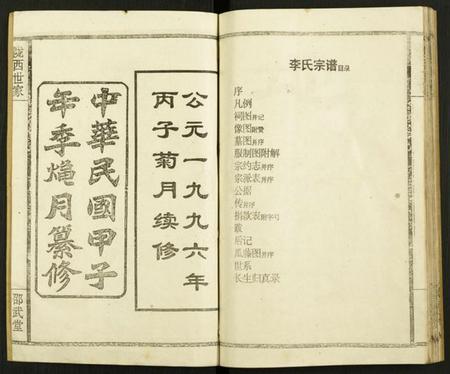 公元一九九六年
丙子菊月续修
中華民國甲子
年季月纂修
陇西世家
邵武堂
李氏宗谱目录
序
凡例
祠图并记
像图附赞
墓图并序
服制图附解
宗约志并序
宗派表并序
公据
传并序
捐款表附字号
跋
后记
瓜藤图并序
世系
长生归真录